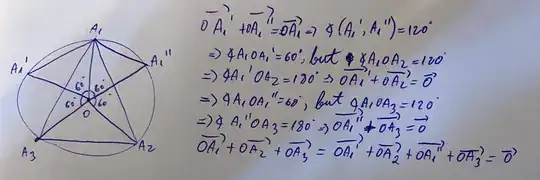 A₁
A₁'
A₁''
6° 6°
6° 6°
O
A₃
A₂
OA₁' + OA₁'' = OA₁ => ∢(A₁', A₁'') = 120°
=> ∢A₁OA₁' = 60°, but ∢A₁OA₂ = 120°
=> ∢A₁'OA₂ = 180° => OA₁' + OA₂ = O
=> ∢A₁OA₁'' = 60°, but ∢A₁OA₃ = 120°
=> ∢A₁''OA₃ = 180° => OA₁'' + OA₃ = O
OA₁ + OA₂ + OA₃ = OA₁' + OA₂ + OA₁'' + OA₃ = O